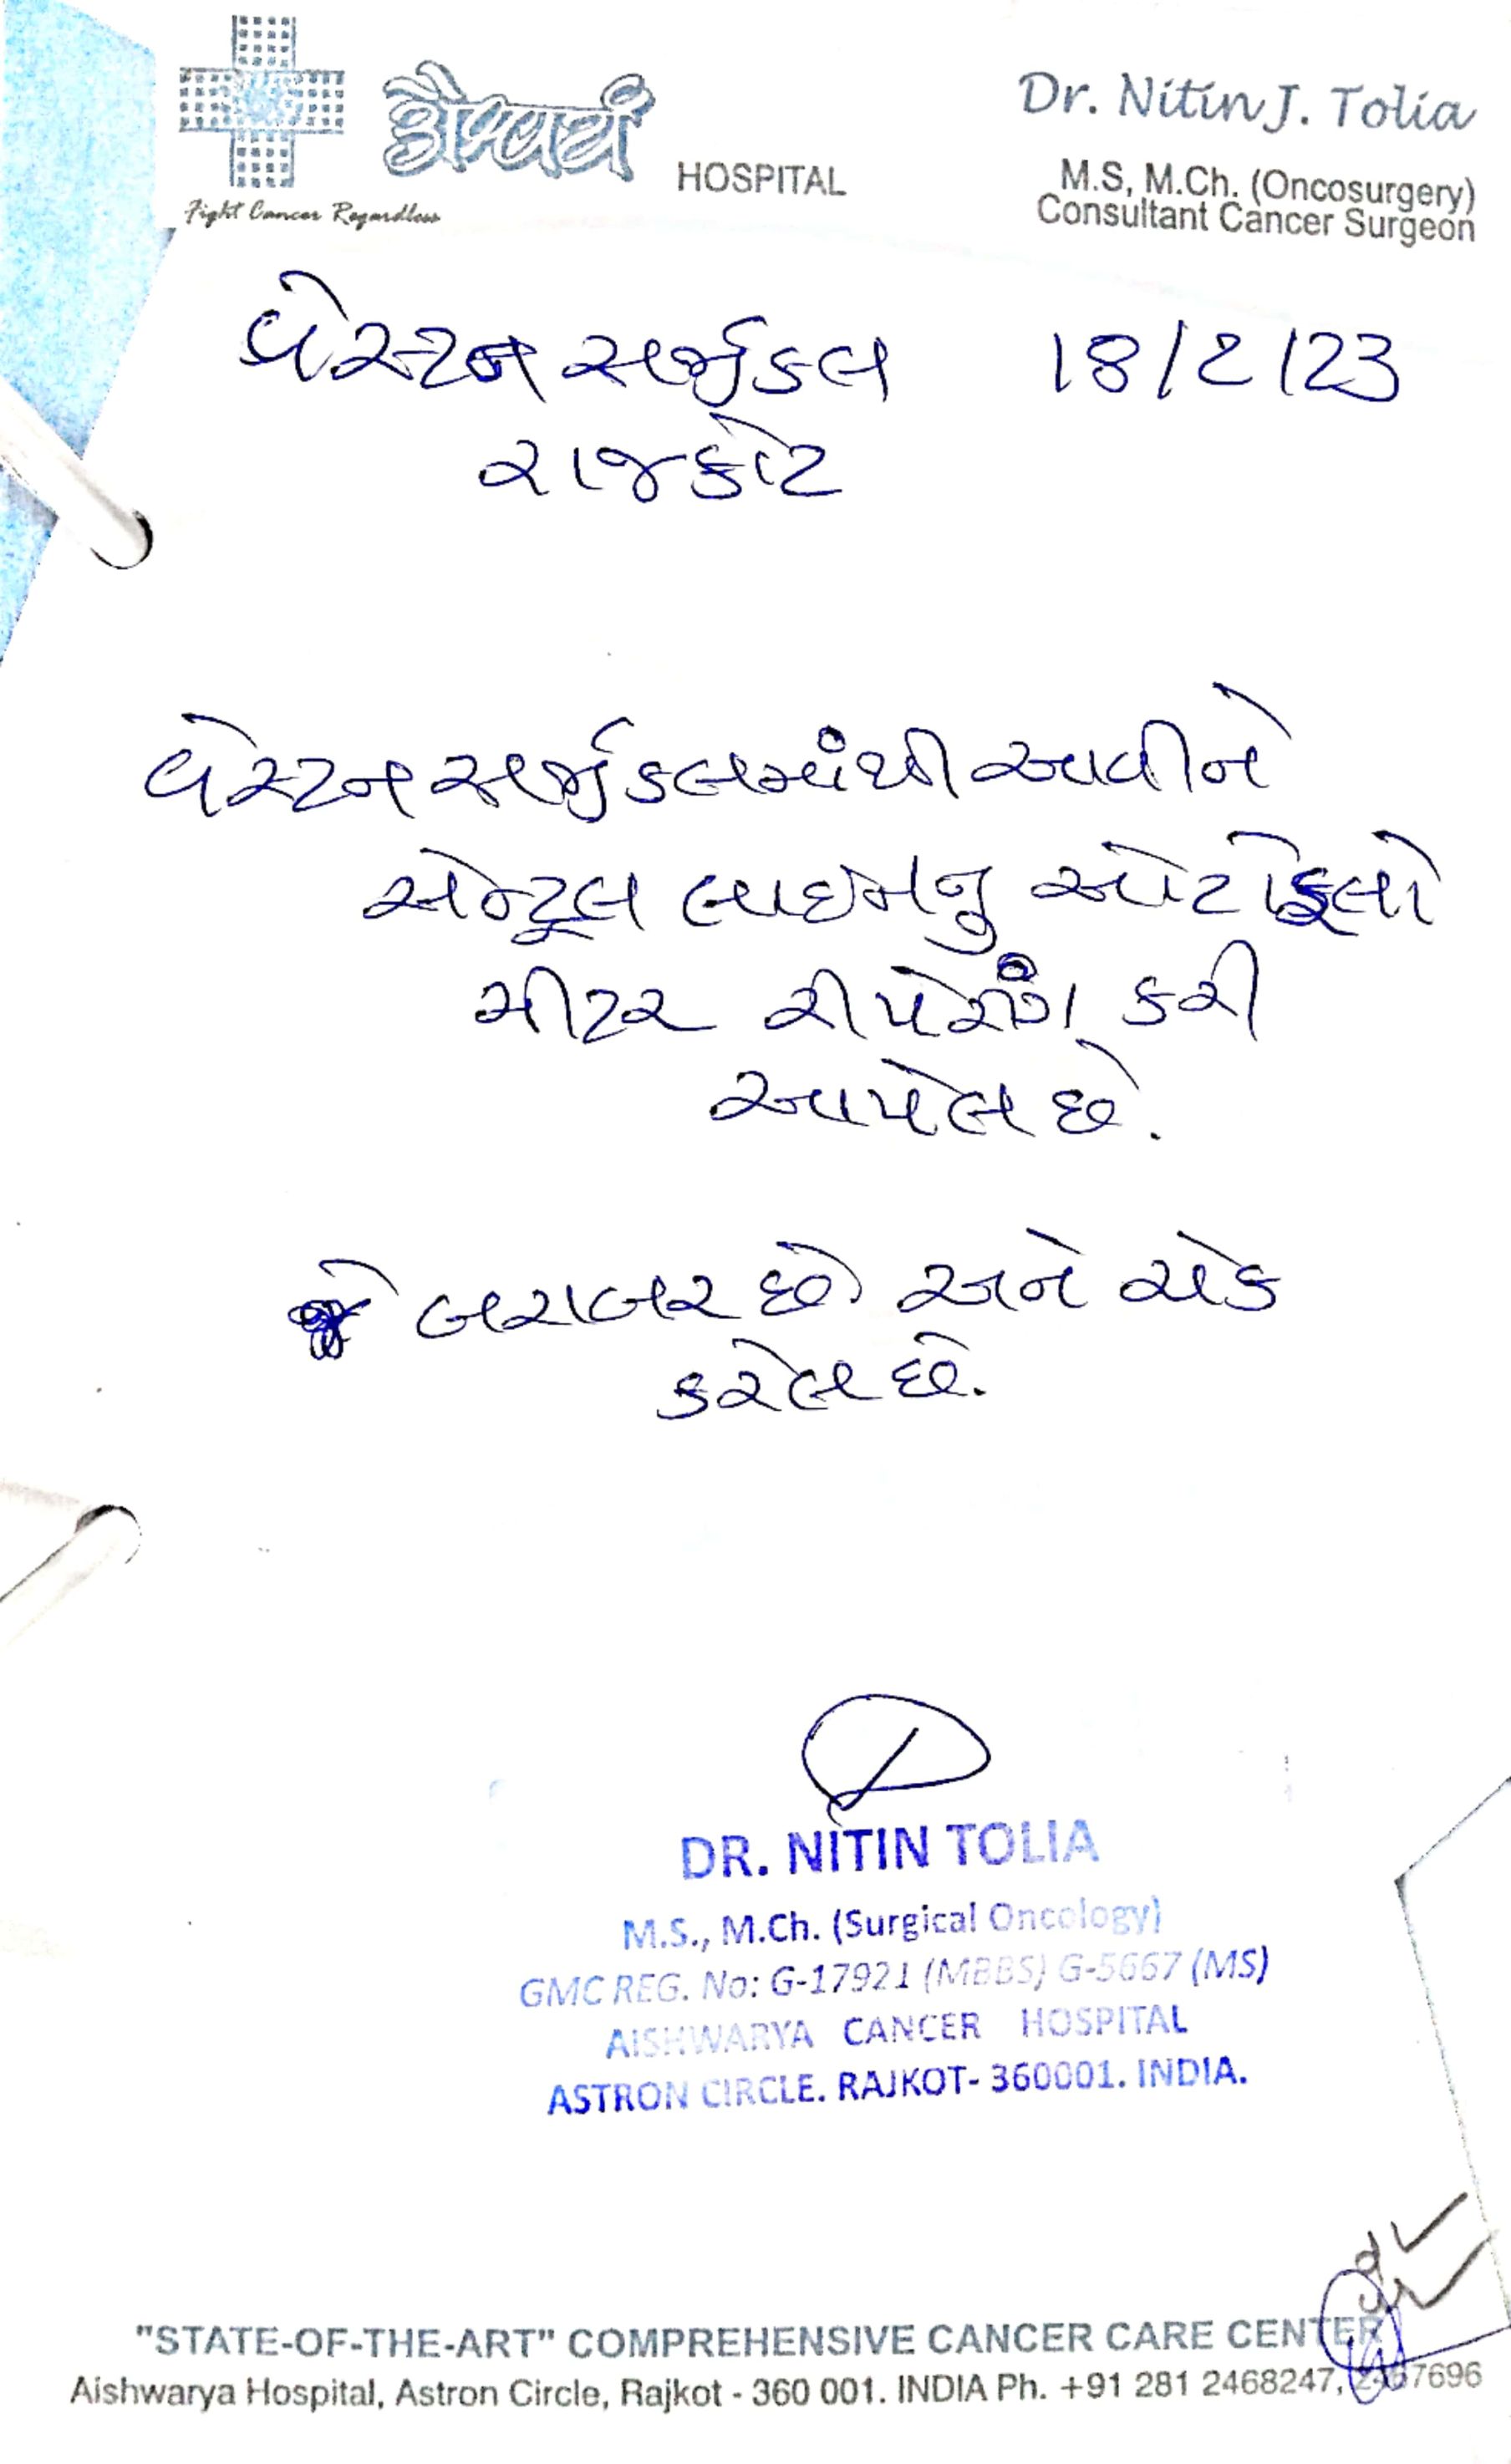 ऐश्वर्य HOSPITAL
Fight Cancer Regardless
Dr. Nitin J. Tolia
M.S, M.Ch. (Oncosurgery)
Consultant Cancer Surgeon
વેસ્ટન સર્જીકલ 18/2/23
રાજકોટ
વેસ્ટન સર્જીકલમાંથી આવીને
સેન્ટ્રલ લાઇનનુ ઓટોફલો
મીટર રીપેરીંગ કરી
આપેલ છે.
જે બરાબર છે અને ચેક
કરેલ છે.
DR. NITIN TOLIA
M.S., M.Ch. (Surgical Oncology)
GMC REG. No: G-17921 (MBBS) G-5667 (MS)
AISHWARYA CANCER HOSPITAL
ASTRON CIRCLE. RAJKOT- 360001. INDIA.
"STATE-OF-THE-ART" COMPREHENSIVE CANCER CARE CENTER
Aishwarya Hospital, Astron Circle, Rajkot - 360 001. INDIA Ph. +91 281 2468247,